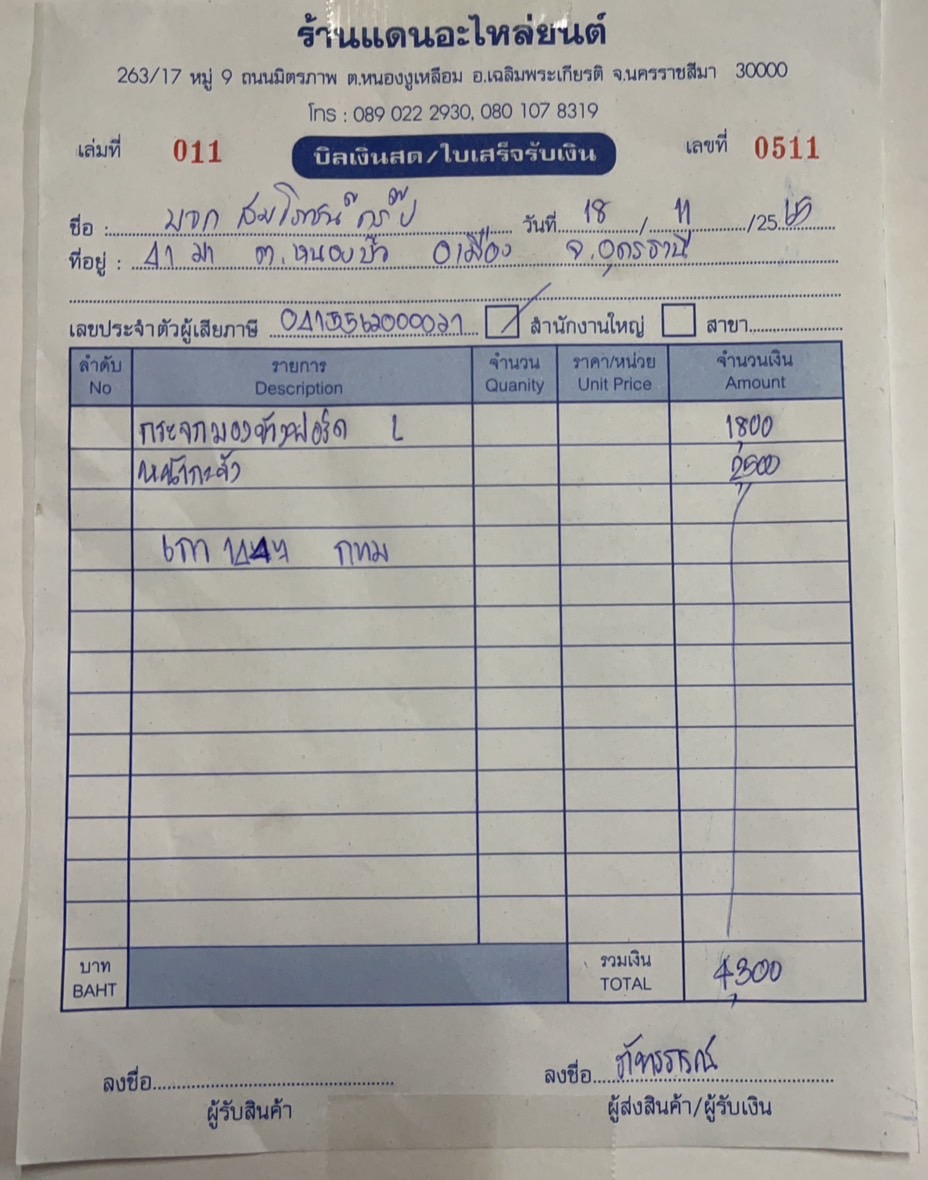 ร้านแดนอะไหล่ยนต์
263/17 หมู่ 9 ถนนมิตรภาพ ต.หนองงูเหลือม อ.เฉลิมพระเกียรติ จ.นครราชสีมา 30000
โทร : 089 022 2930, 080 107 8319
เล่มที่ 011 บิลเงินสด/ใบเสร็จรับเงิน เลขที่ 0511
ชื่อ : บจก วันที่ 18 / 11 /25
ที่อยู่ : ต.หนองบัว อ.เมือง จ.อุดรธานี
เลขประจำตัวผู้เสียภาษี สำนักงานใหญ่ สาขา
ลำดับ รายการ จำนวน ราคา/หน่วย จำนวนเงิน
No Description Quanity Unit Price Amount
กระจกมองข้างฟอร์ด L 1800
หน้ากระจัง 2500
กทม
บาท รวมเงิน 4,300
BAHT TOTAL
ลงชื่อ ลงชื่อ
ผู้รับสินค้า ผู้ส่งสินค้า/ผู้รับเงิน